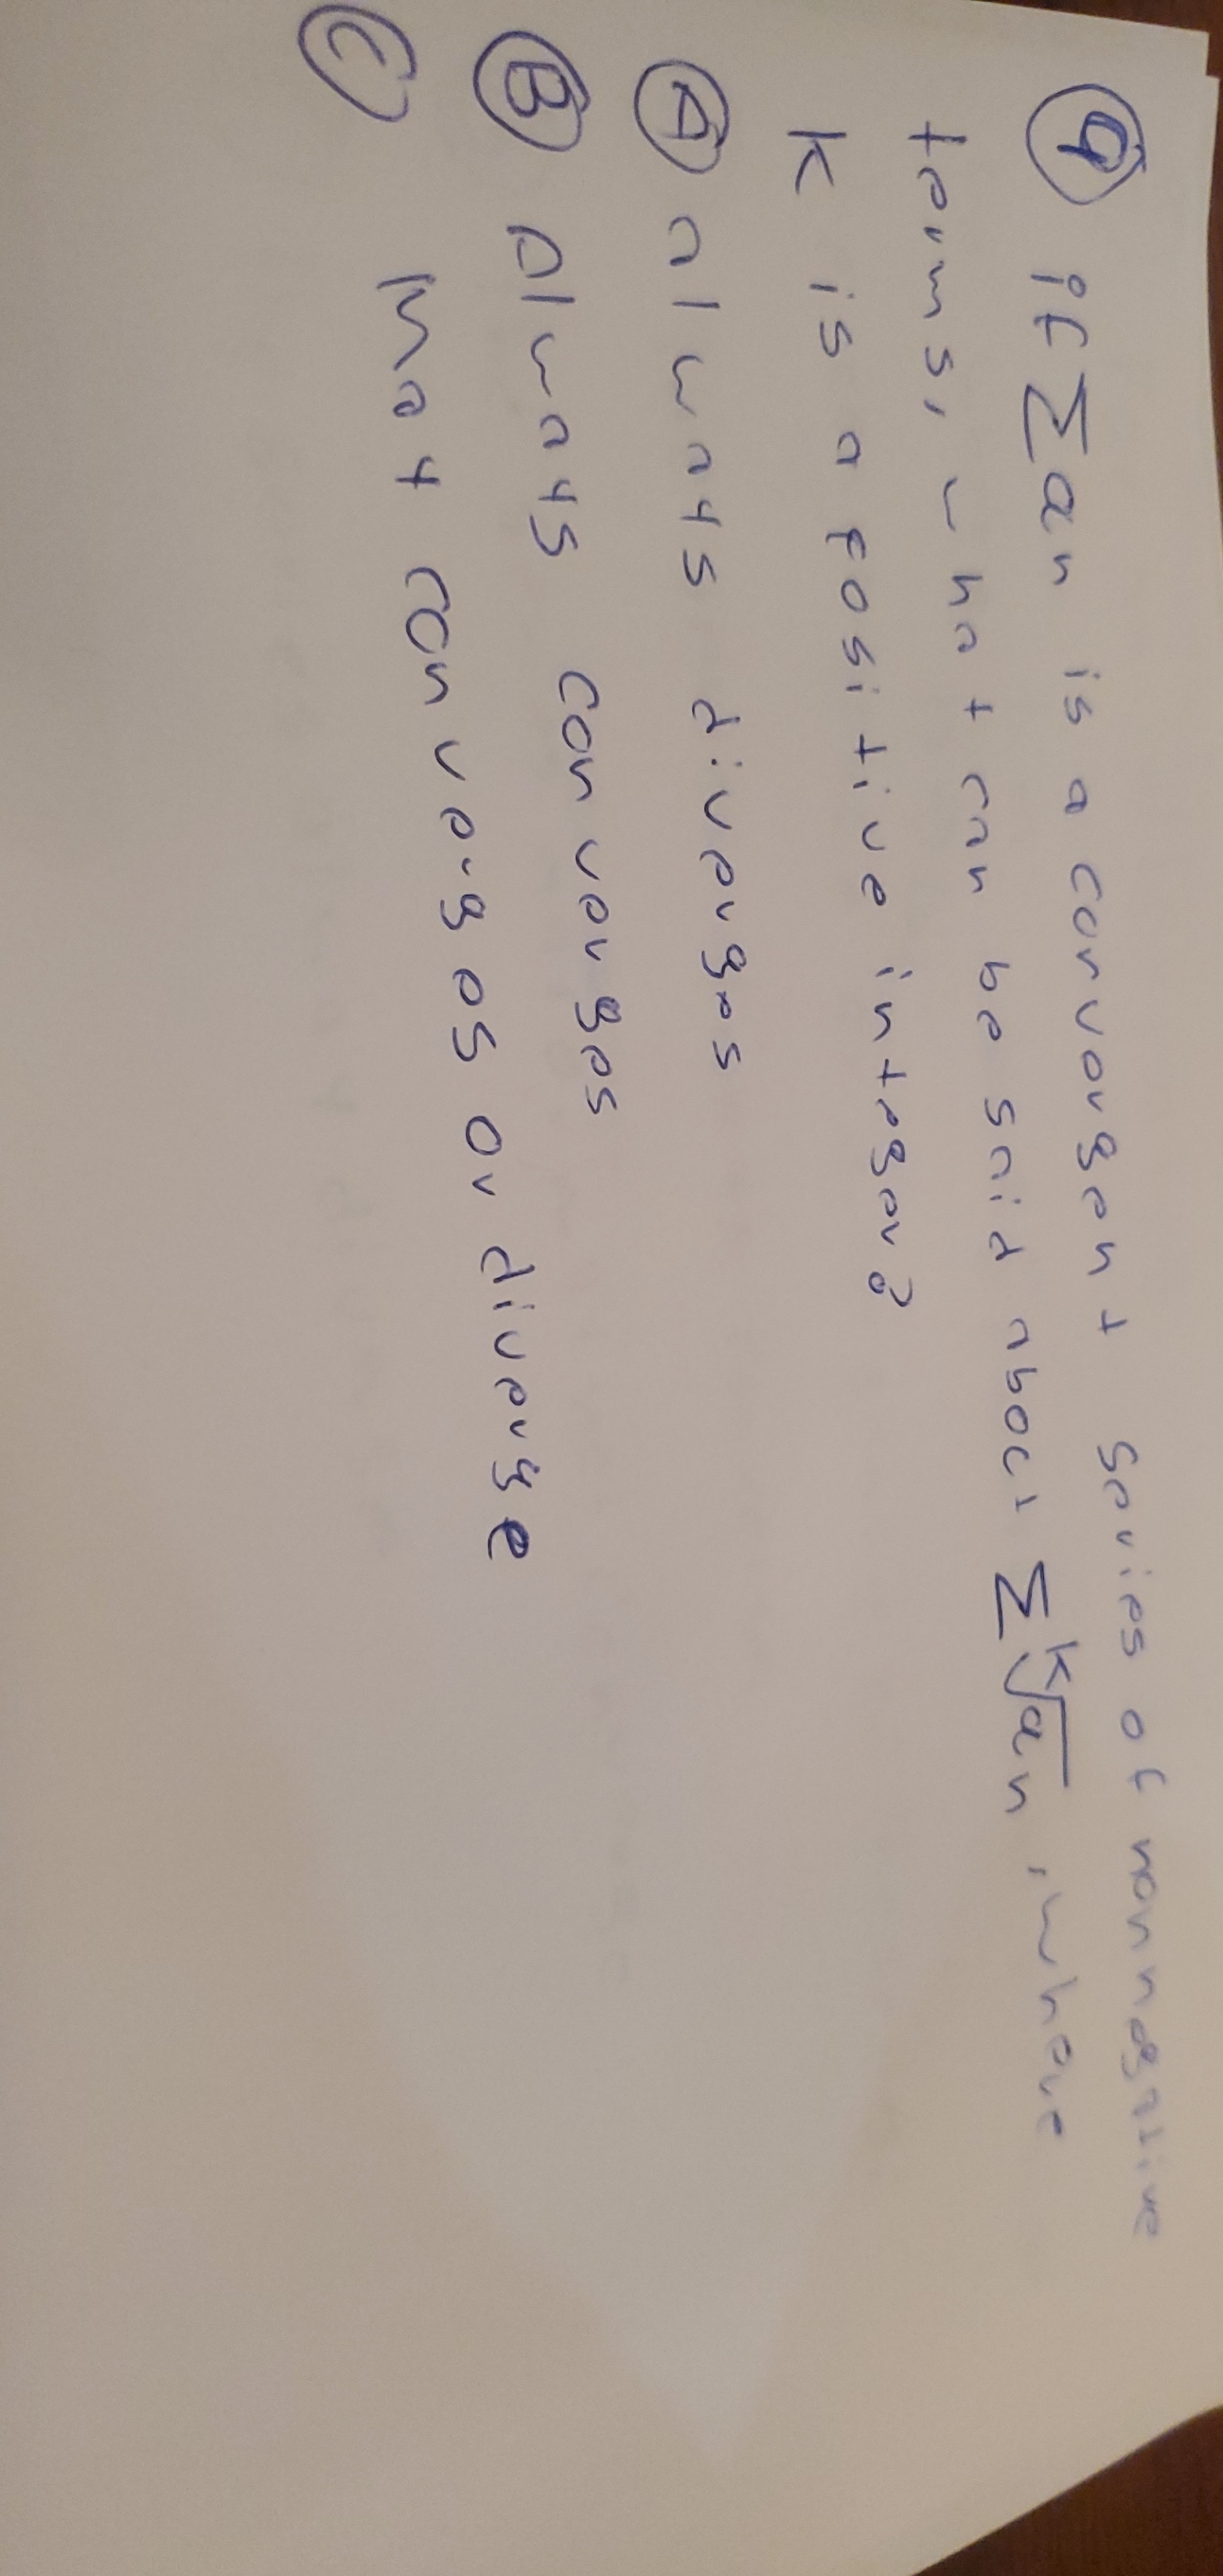 9 if ∑ an is a convergent series of nonnegative
terms, what can be said about ∑ ᵏ√an , where
k is a positive integer?
A always diverges
B Always converges
C May converges or diverge